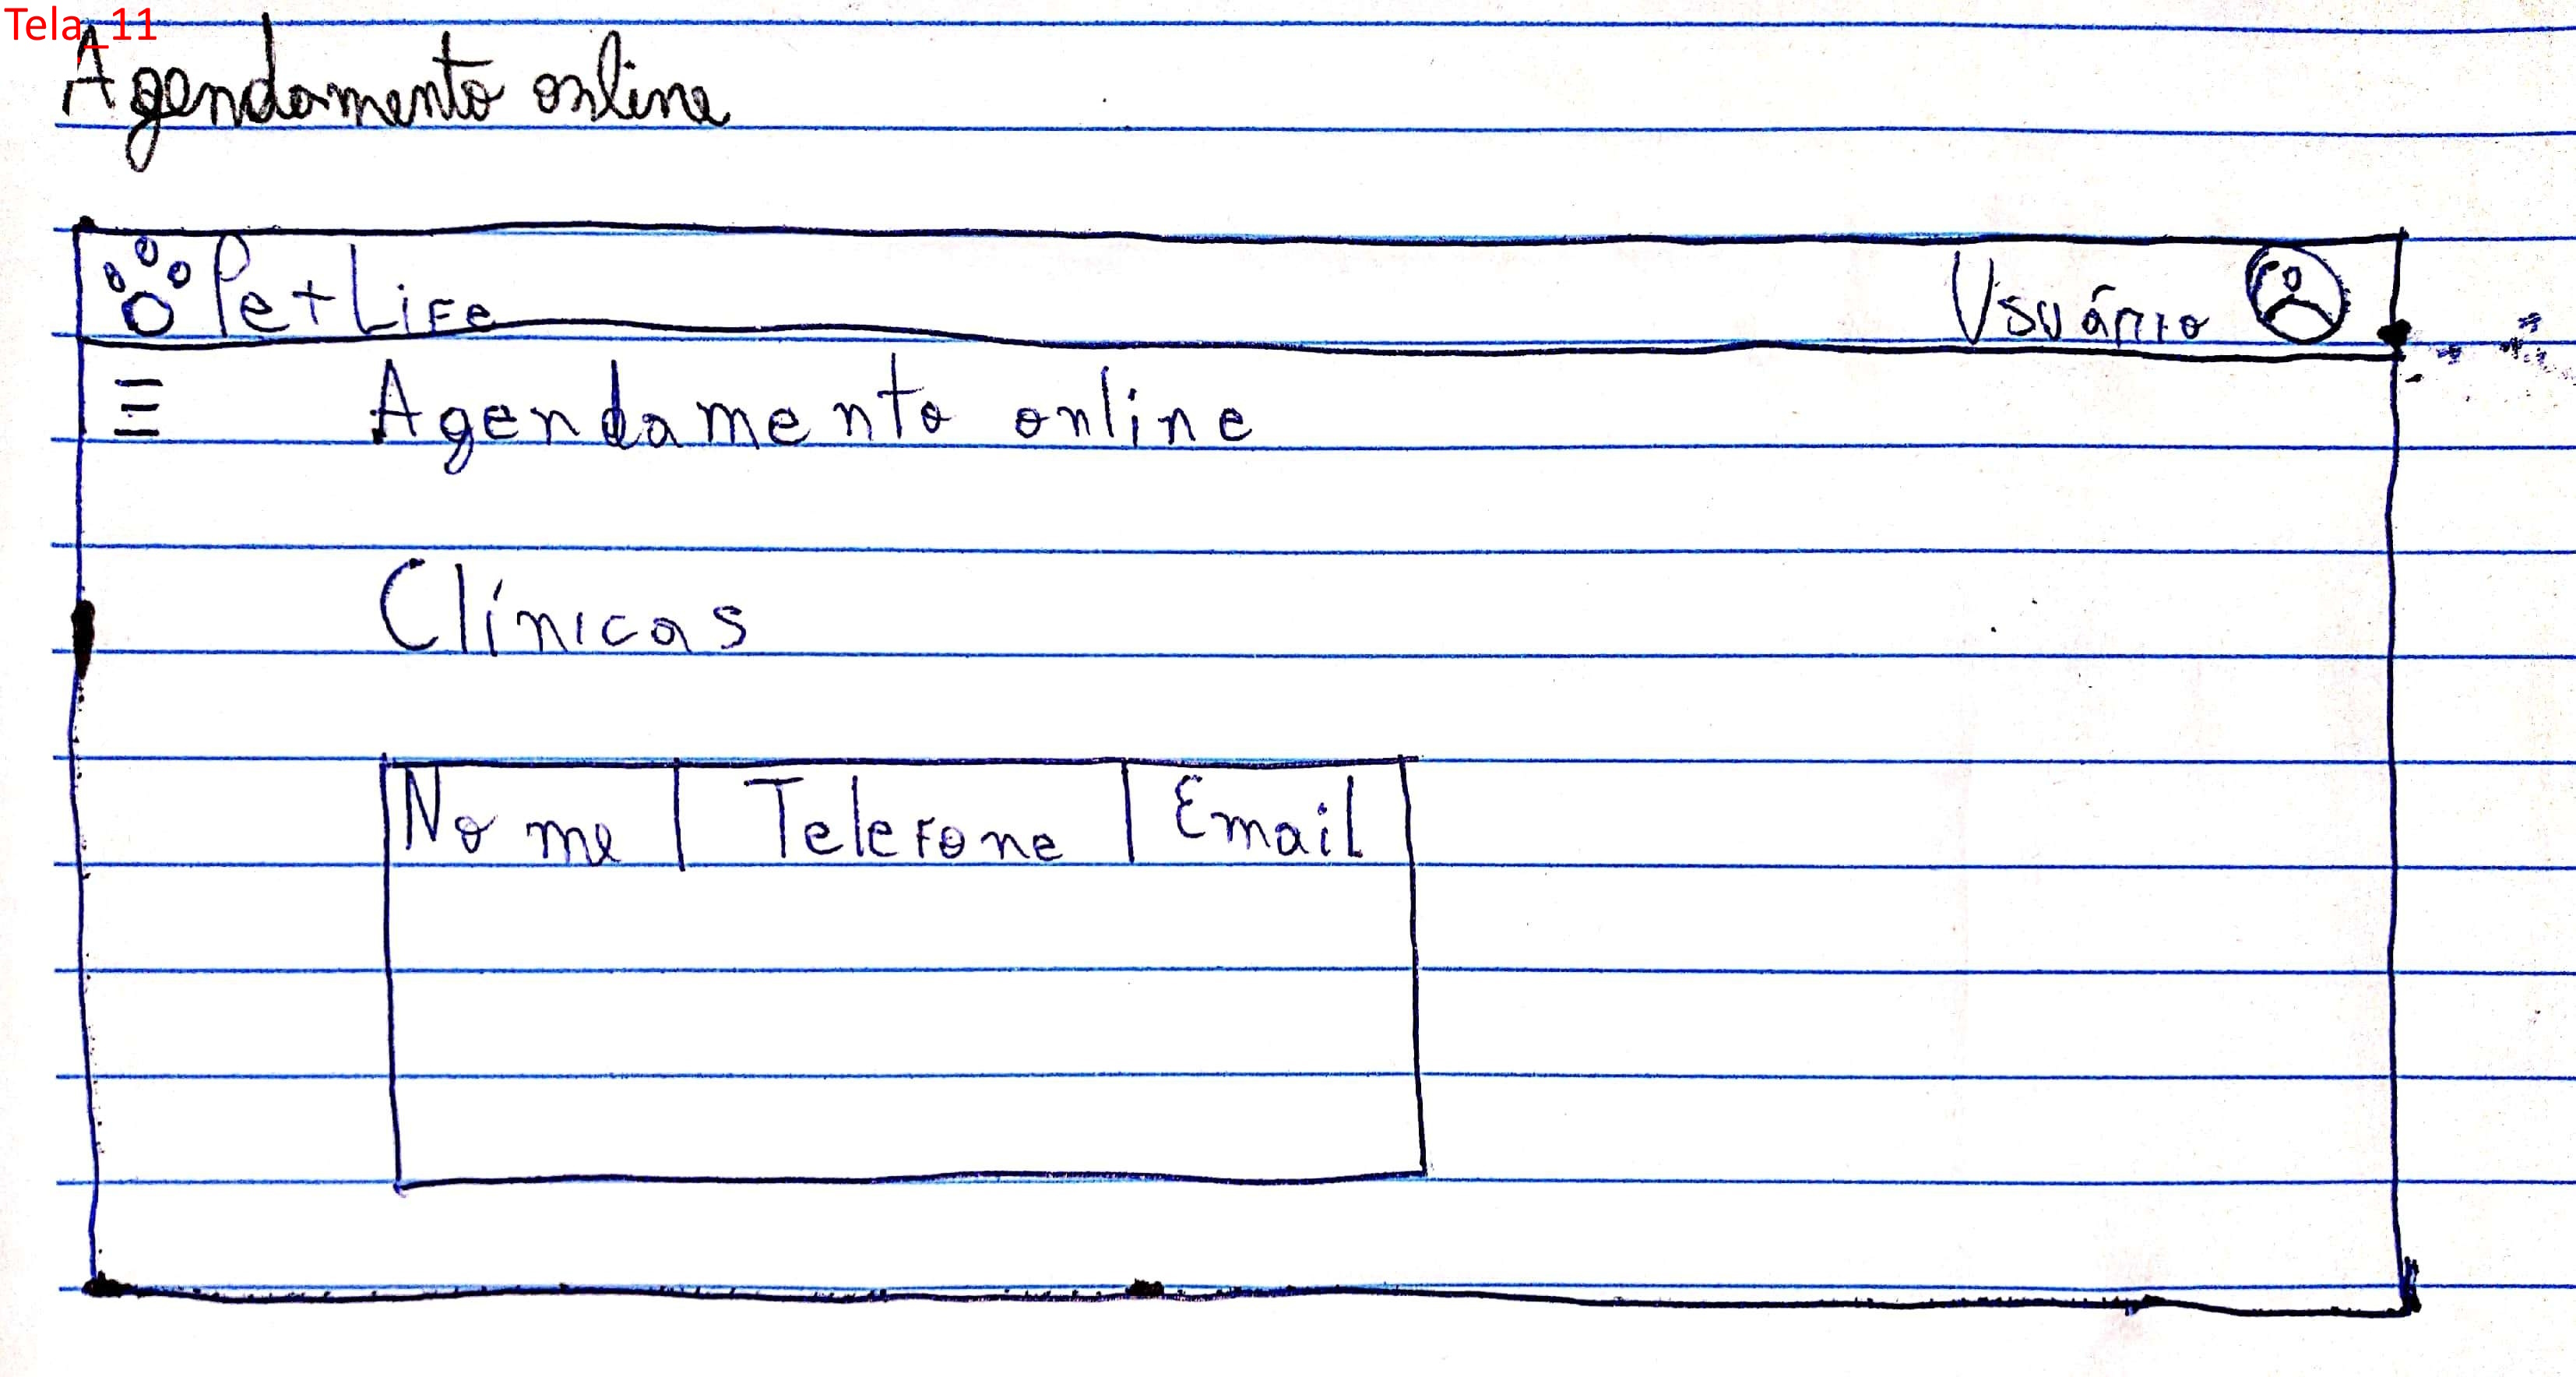 Tela_11
Agendamento online
Pet Life Usuário
Agendamento online
Clínicas
Nome Telefone Email